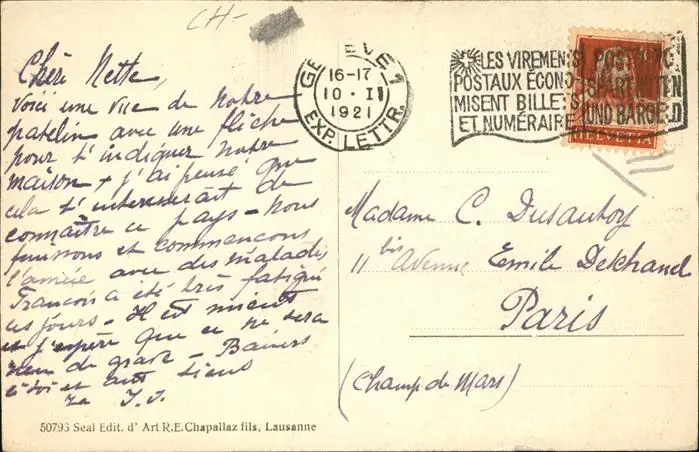 CH-
Chère Nette,
Voici une vue de notre
patelin avec une flèche
pour t'indiquer notre
maison & j'ai pensé que
cela t'intéresserait de
connaître ce pays - Nous
finissons et commençons
l'année avec des maladies
François a été très fatigué
ces jours - Il est mieux
et j'espère que ce ne sera
rien de grave - Baisers
à toi et aux tiens
50793 Seal Edit. d' Art R.E. Chapallaz fils, Lausanne
GENÈVE 1
16-17
10 · I
1921
EXP. LETTR.
LES VIREMENTS
POSTAUX ÉCONO-
MISENT BILLETS
ET NUMÉRAIRE
POSTGIRO
SPART NOTEN
UND BARGELD
HELVETIA
Madame C. Dusautoy
11 bis Avenue Emile Deschanel
Paris
(Champ de Mars)